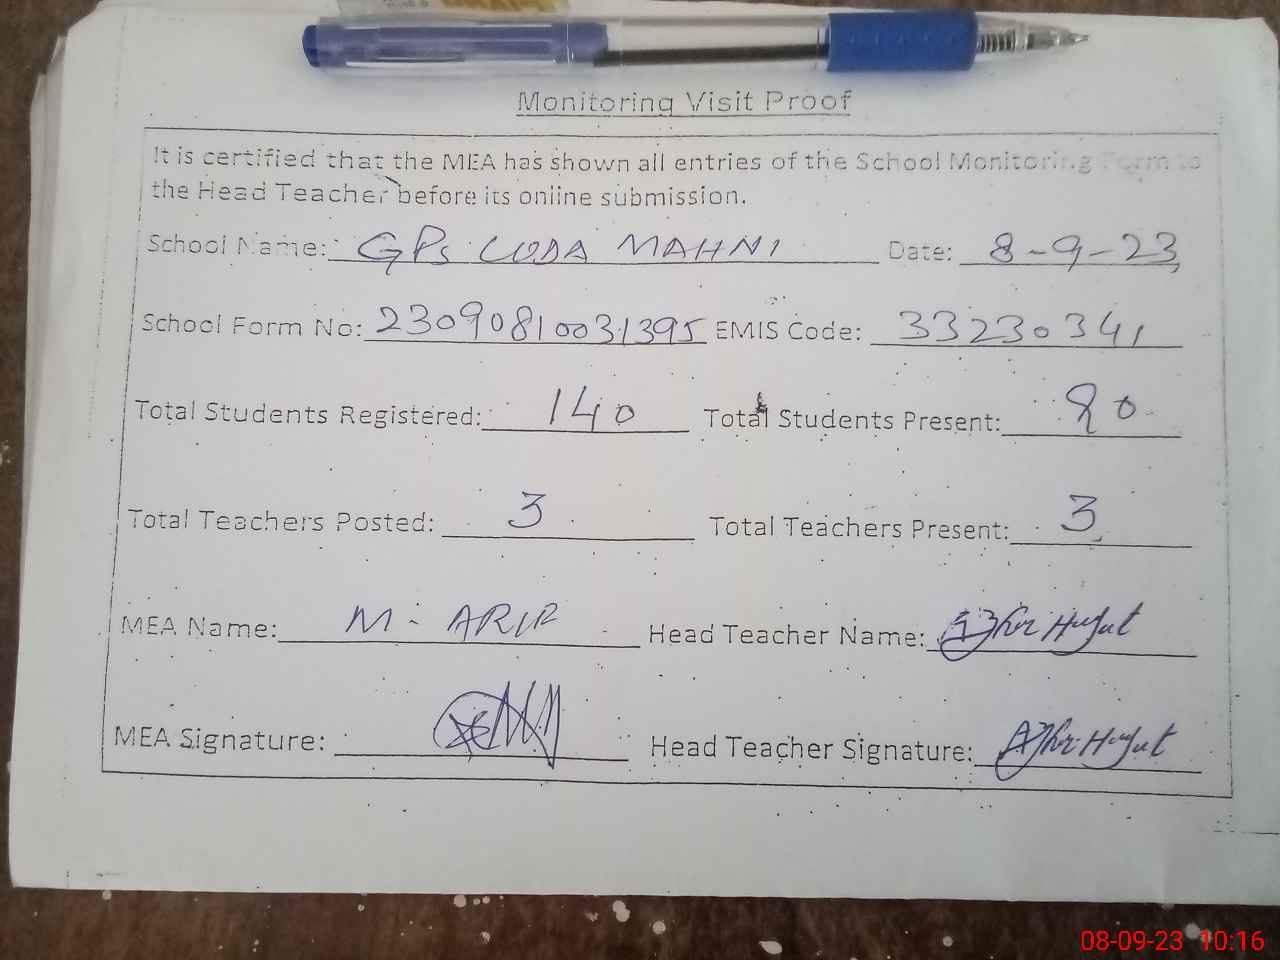 Monitoring Visit Proof
It is certified that the MEA has shown all entries of the School Monitoring Form to
the Head Teacher before its online submission.
School Name: GPS LODA MAHNI Date: 8-9-23
School Form No: 23090810031395 EMIS Code: 33230341
Total Students Registered: 140 Total Students Present: 80
Total Teachers Posted: 3 Total Teachers Present: 3
MEA Name: M. ARIF Head Teacher Name:
MEA Signature: Head Teacher Signature:
08-09-23 10:16